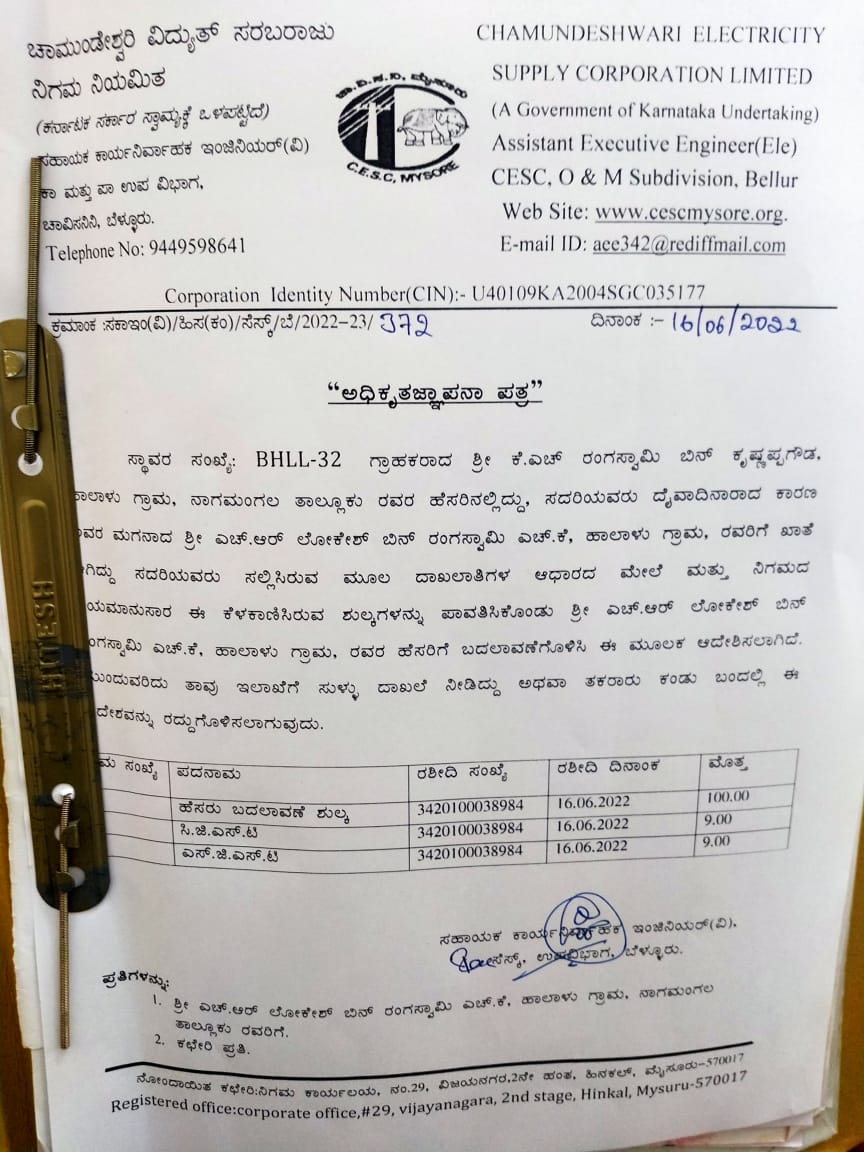 ಚಾಮುಂಡೇಶ್ವರಿ ವಿದ್ಯುತ್ ಸರಬರಾಜು
ನಿಗಮ ನಿಯಮಿತ
(ಕರ್ನಾಟಕ ಸರ್ಕಾರ ಸ್ವಾಮ್ಯಕ್ಕೆ ಒಳಪಟ್ಟಿದೆ)
ಸಹಾಯಕ ಕಾರ್ಯನಿರ್ವಾಹಕ ಇಂಜಿನಿಯರ್(ವಿ)
ಕಾ ಮತ್ತು ಪಾ ಉಪ ವಿಭಾಗ,
ಚಾವಿಸನಿನಿ, ಬೆಳ್ಳೂರು.
Telephone No: 9449598641
ಚಾ.ವಿ.ಸ.ನಿ, ಮೈಸೂರು
C.E.S.C, MYSORE
CHAMUNDESHWARI ELECTRICITY
SUPPLY CORPORATION LIMITED
(A Government of Karnataka Undertaking)
Assistant Executive Engineer(Ele)
CESC, O & M Subdivision, Bellur
Web Site: www.cescmysore.org.
E-mail ID: aee342@rediffmail.com
Corporation Identity Number(CIN):- U40109KA2004SGC035177
ಕ್ರಮಾಂಕ :ಸಕಾಇಂ(ವಿ)/ಹಿಸ(ಕಂ)/ಸೆಸ್ಕ್/ಬೆ/2022-23/ 372 ದಿನಾಂಕ :- 16/06/2022
“ಅಧಿಕೃತಜ್ಞಾಪನಾ ಪತ್ರ”
ಸ್ಥಾವರ ಸಂಖ್ಯೆ: BHLL-32 ಗ್ರಾಹಕರಾದ ಶ್ರೀ ಕೆ.ಎಚ್ ರಂಗಸ್ವಾಮಿ ಬಿನ್ ಕೃಷ್ಣಪ್ಪಗೌಡ,
ಹಾಲಾಳು ಗ್ರಾಮ, ನಾಗಮಂಗಲ ತಾಲ್ಲೂಕು ರವರ ಹೆಸರಿನಲ್ಲಿದ್ದು, ಸದರಿಯವರು ದೈವಾದಿನಾರಾದ ಕಾರಣ
ವರ ಮಗನಾದ ಶ್ರೀ ಎಚ್.ಆರ್ ಲೋಕೇಶ್ ಬಿನ್ ರಂಗಸ್ವಾಮಿ ಎಚ್.ಕೆ, ಹಾಲಾಳು ಗ್ರಾಮ, ರವರಿಗೆ ಖಾತೆ
ಗಿದ್ದು ಸದರಿಯವರು ಸಲ್ಲಿಸಿರುವ ಮೂಲ ದಾಖಲಾತಿಗಳ ಆಧಾರದ ಮೇಲೆ ಮತ್ತು ನಿಗಮದ
ಯಮಾನುಸಾರ ಈ ಕೆಳಕಾಣಿಸಿರುವ ಶುಲ್ಕಗಳನ್ನು ಪಾವತಿಸಿಕೊಂಡು ಶ್ರೀ ಎಚ್.ಆರ್ ಲೋಕೇಶ್ ಬಿನ್
ಂಗಸ್ವಾಮಿ ಎಚ್.ಕೆ, ಹಾಲಾಳು ಗ್ರಾಮ, ರವರ ಹೆಸರಿಗೆ ಬದಲಾವಣೆಗೊಳಿಸಿ ಈ ಮೂಲಕ ಆದೇಶಿಸಲಾಗಿದೆ.
ಮುಂದುವರಿದು ತಾವು ಇಲಾಖೆಗೆ ಸುಳ್ಳು ದಾಖಲೆ ನೀಡಿದ್ದು ಅಥವಾ ತಕರಾರು ಕಂಡು ಬಂದಲ್ಲಿ ಈ
ದೇಶವನ್ನು ರದ್ದುಗೊಳಿಸಲಾಗುವುದು.
ಮ ಸಂಖ್ಯೆ ಪದನಾಮ ರಶೀದಿ ಸಂಖ್ಯೆ ರಶೀದಿ ದಿನಾಂಕ ಮೊತ್ತ
ಹೆಸರು ಬದಲಾವಣೆ ಶುಲ್ಕ 3420100038984 16.06.2022 100.00
ಸಿ.ಜಿ.ಎಸ್.ಟಿ 3420100038984 16.06.2022 9.00
ಎಸ್.ಜಿ.ಎಸ್.ಟಿ 3420100038984 16.06.2022 9.00
ಸಹಾಯಕ ಕಾರ್ಯನಿರ್ವಾಹಕ ಇಂಜಿನಿಯರ್(ವಿ),
ಸೆಸ್ಕ್, ಉಪವಿಭಾಗ, ಬೆಳ್ಳೂರು.
ಪ್ರತಿಗಳನ್ನು:
1. ಶ್ರೀ ಎಚ್.ಆರ್ ಲೋಕೇಶ್ ಬಿನ್ ರಂಗಸ್ವಾಮಿ ಎಚ್.ಕೆ, ಹಾಲಾಳು ಗ್ರಾಮ, ನಾಗಮಂಗಲ
ತಾಲ್ಲೂಕು ರವರಿಗೆ.
2. ಕಛೇರಿ ಪ್ರತಿ.
ನೋಂದಾಯಿತ ಕಛೇರಿ:ನಿಗಮ ಕಾರ್ಯಲಯ, ನಂ.29, ವಿಜಯನಗರ,2ನೇ ಹಂತ, ಹಿನಕಲ್, ಮೈಸೂರು-570017
Registered office:corporate office,#29, vijayanagara, 2nd stage, Hinkal, Mysuru-570017